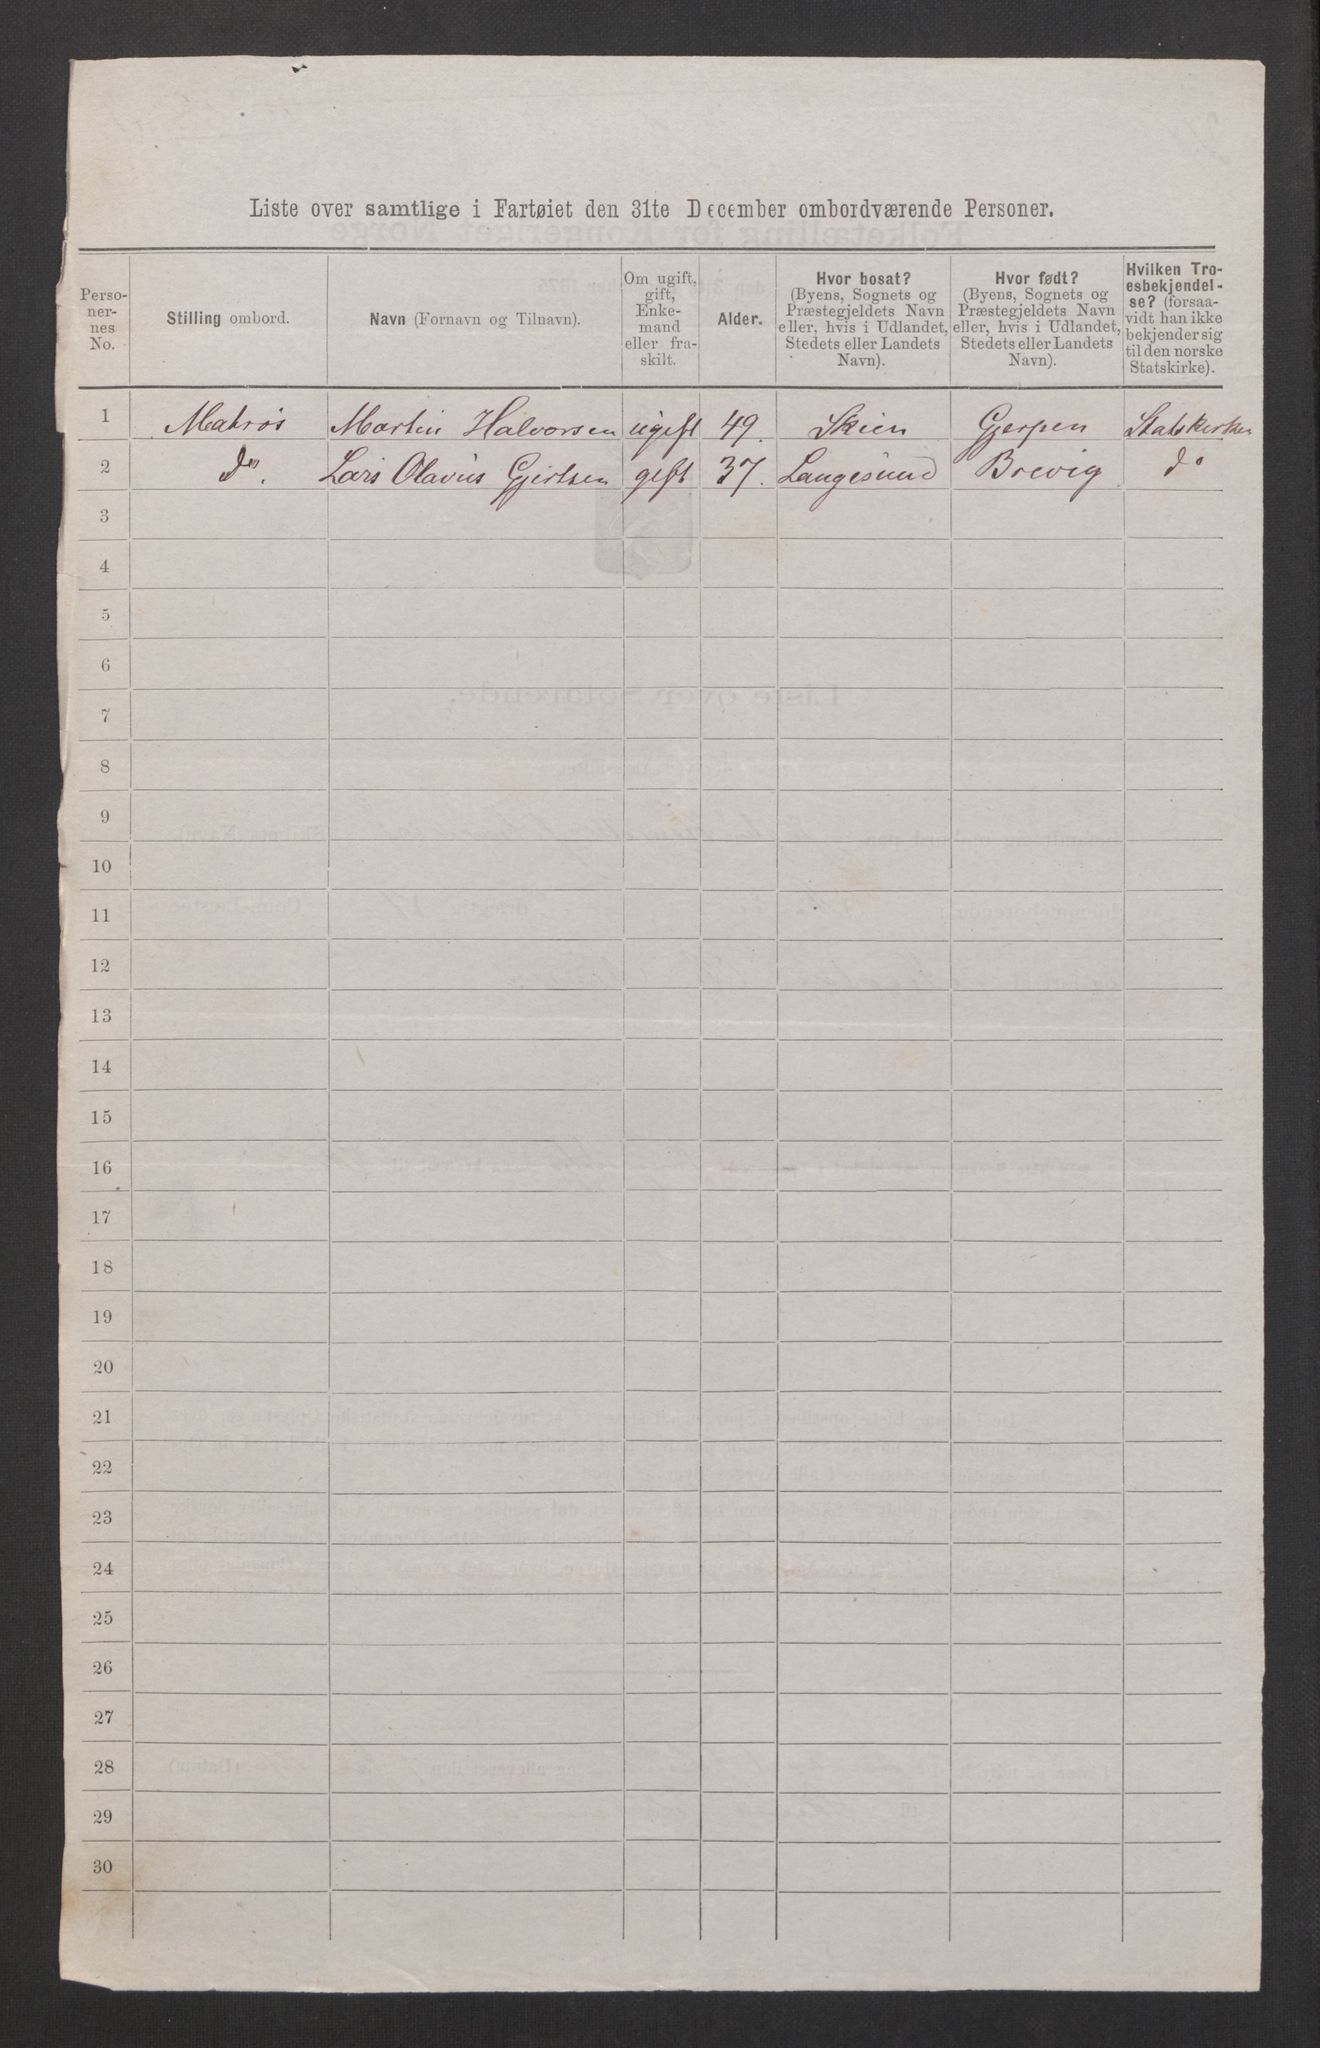 Liste over samtlige i Fartøiet den 31te December ombordværende Personer.
Perso-
ner-
nes
No.
Stilling ombord.
Navn (Fornavn og Tilnavn).
Om ugift,
gift,
Enke-
mand
eller fra-
skilt.
Alder.
Hvor bosat?
(Byens, Sognets og
Præstegjeldets Navn
eller, hvis i Udlandet,
Stedets eller Landets
Navn).
Hvor født?
(Byens, Sognets og
Præstegjeldets Navn
eller, hvis i Udlandet,
Stedets eller Landets
Navn).
Hvilken Tro-
esbekjendel-
se? (forsaa-
vidt han ikke
bekjender sig
til den norske
Statskirke).
1 Matros Martin Halvorsen ugift 49. Skien Gjerpen Statskirken
2 Do. Lars Olavus Gjertsen gift 37. Langesund Brevig do
3
4
5
6
7
8
9
10
11
12
13
14
15
16
17
18
19
20
21
22
23
24
25
26
27
28
29
30